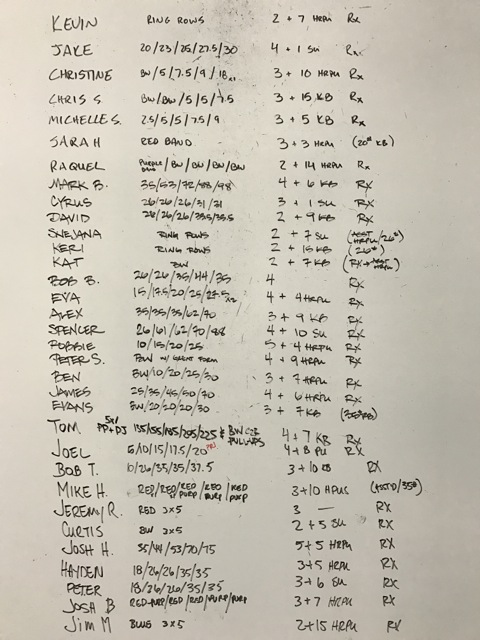 KEVIN RING ROWS 2 + 7 HRPU Rx
JAKE 20/23/25/27.5/30 4 + 1 SU Rx
CHRISTINE BW/5/7.5/9/18x1 3 + 10 HRPU Rx
CHRIS S BW/BW/5/5/7.5 3 + 15 KB Rx
MICHELLE S. 2.5/5/5/7.5/9 3 + 5 KB Rx
JARAH RED BAND 3 + 3 HRPU (20# KB)
RAQUEL PURPLE BAND/BW/BW/BW/BW 2 + 14 HRPU Rx
MARK B. 35/53/72/88/98 4 + 6 KB RX
CYRUS 26/26/26/31/31 3 + 1 SU RX
DAVID 26/26/35.5/35.5 2 + 9 KB RX
SNEJANA RING ROWS 2 + 7 SU (ASST HRPU/26#)
KERI RING ROWS 2 + 15 KB (26#)
KAT BW 2 + 7 KB (RX ASST HRPU)
BOB B. 26/26/35/44/35 4 RX
EVA 15/17.5/20/25/27.5 x2 4 + 4 HRPU RX
ALEX 35/35/35/62/70 3 + 9 KB RX
SPENCER 26/61/62/70/88 4 + 10 SU RX
ROBBIE 10/15/20/25 5 + 4 HRPU RX
PETER S. BW W/ GREAT FORM 4 + 9 HRPU RX
BEN BW/10/20/25/30 3 + 7 HRPU RX
JAMES 25/35/45/50/70 4 + 6 HRPU RX
EVANS BW/20/20/20/30 3 + 7 KB
TOM 5x1 PP+PJ 135/155/185/205/225 & BW C2B PULL-UPS 4 + 7 KB RX
JOEL 5/10/15/17.5/20 4 + 8 PU RX
BOB T. 10/26/35/35/37.5 3 + 10 KB RX
MIKE H. RED/RED/RED + PURP/RED PURP/RED PURP 3 + 10 HPUS (ASSTD/35#)
JEREMY R. RED 3x5 3 — RX
CURTIS BW 3x5 2 + 5 SU RX
JOSH H. 35/44/53/70/75 5 + 5 HRPU RX
HAYDEN 18/26/26/35/35 3 + 5 HRPU RX
PETER 18/26/26/35/35 3 + 6 SU RX
JOSH B RED-PURP/RED/RED/PURP/PURP 3 + 7 HRPU RX
JIM M BLUE 3x5 2 + 15 HRPU RX